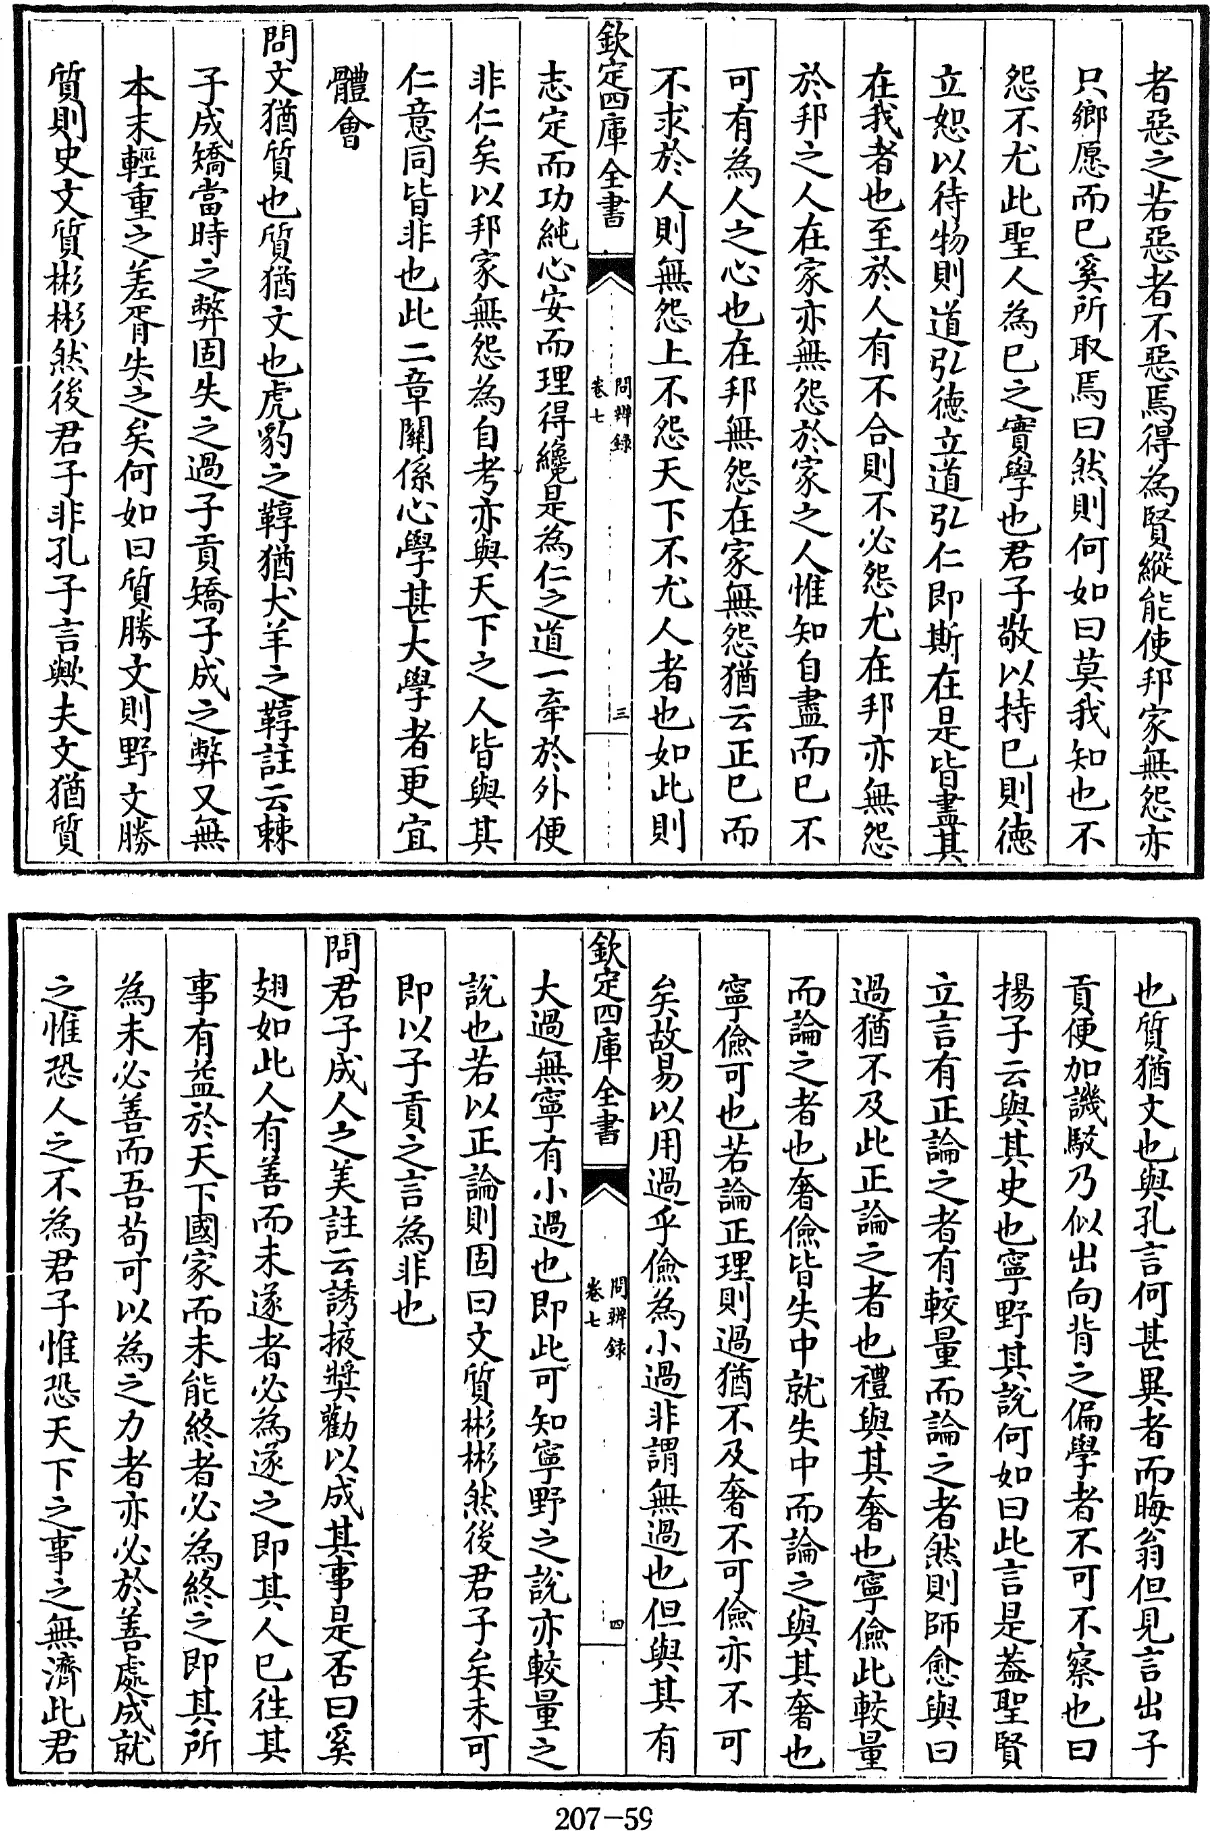 者惡之若惡者不惡焉得為賢縱能使邦家無怨亦
只鄉愿而已奚所取焉曰然則何如曰莫我知也不
怨不尤此聖人為已之實學也君子敬以持已則德
立恕以待物則道弘德立道弘仁即斯在是皆盡其
在我者也至於人有不合則不必怨尤在邦亦無怨
於邦之人在家亦無怨於家之人惟知自盡而已不
可有為人之心也在邦無怨在家無怨猶云正已而
不求於人則無怨上不怨天下不尤人者也如此則
欽定四庫全書
問辨錄
卷七
三
志定而功純心安而理得纔是為仁之道一牽於外便
非仁矣以邦家無怨為自考亦與天下之人皆與其
仁意同皆非也此二章關係心學甚大學者更宜
體會
問文猶質也質猶文也虎豹之鞟猶犬羊之鞟註云棘
子成矯當時之弊固失之過子貢矯子成之弊又無
本末輕重之差胥失之矣何如曰質勝文則野文勝
質則史文質彬彬然後君子非孔子言歟夫文猶質
也質猶文也與孔言何甚異者而晦翁但見言出子
貢便加譏駁乃似出向背之偏學者不可不察也曰
揚子云與其史也寧野其說何如曰此言是葢聖賢
立言有正論之者有較量而論之者然則師愈與曰
過猶不及此正論之者也禮與其奢也寧儉此較量
而論之者也奢儉皆失中就失中而論之與其奢也
寧儉可也若論正理則過猶不及奢不可儉亦不可
矣故易以用過乎儉為小過非謂無過也但與其有
欽定四庫全書
問辨錄
卷七
四
大過無寧有小過也即此可知寧野之說亦較量之
說也若以正論則固曰文質彬彬然後君子矣未可
即以子貢之言為非也
問君子成人之美註云誘掖奬勸以成其事是否曰奚
翅如此人有善而未遂者必為遂之即其人已往其
事有益於天下國家而未能終者必為終之即其所
為未必善而吾苟可以為之力者亦必於善處成就
之惟恐人之不為君子惟恐天下之事之無濟此君
207-59